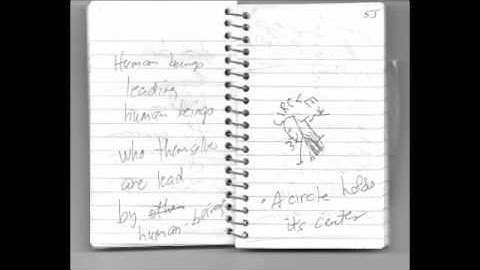 Human beings
leading
human beings
who themselves
are lead
by other
human beings
SJ
CIRCLE
• A circle holds
its center